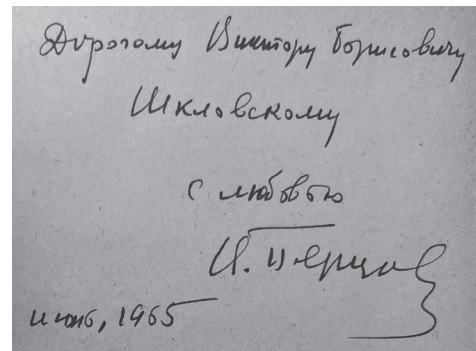 Дорогому Виктору Борисовичу
Шкловскому
с любовью
июнь, 1965